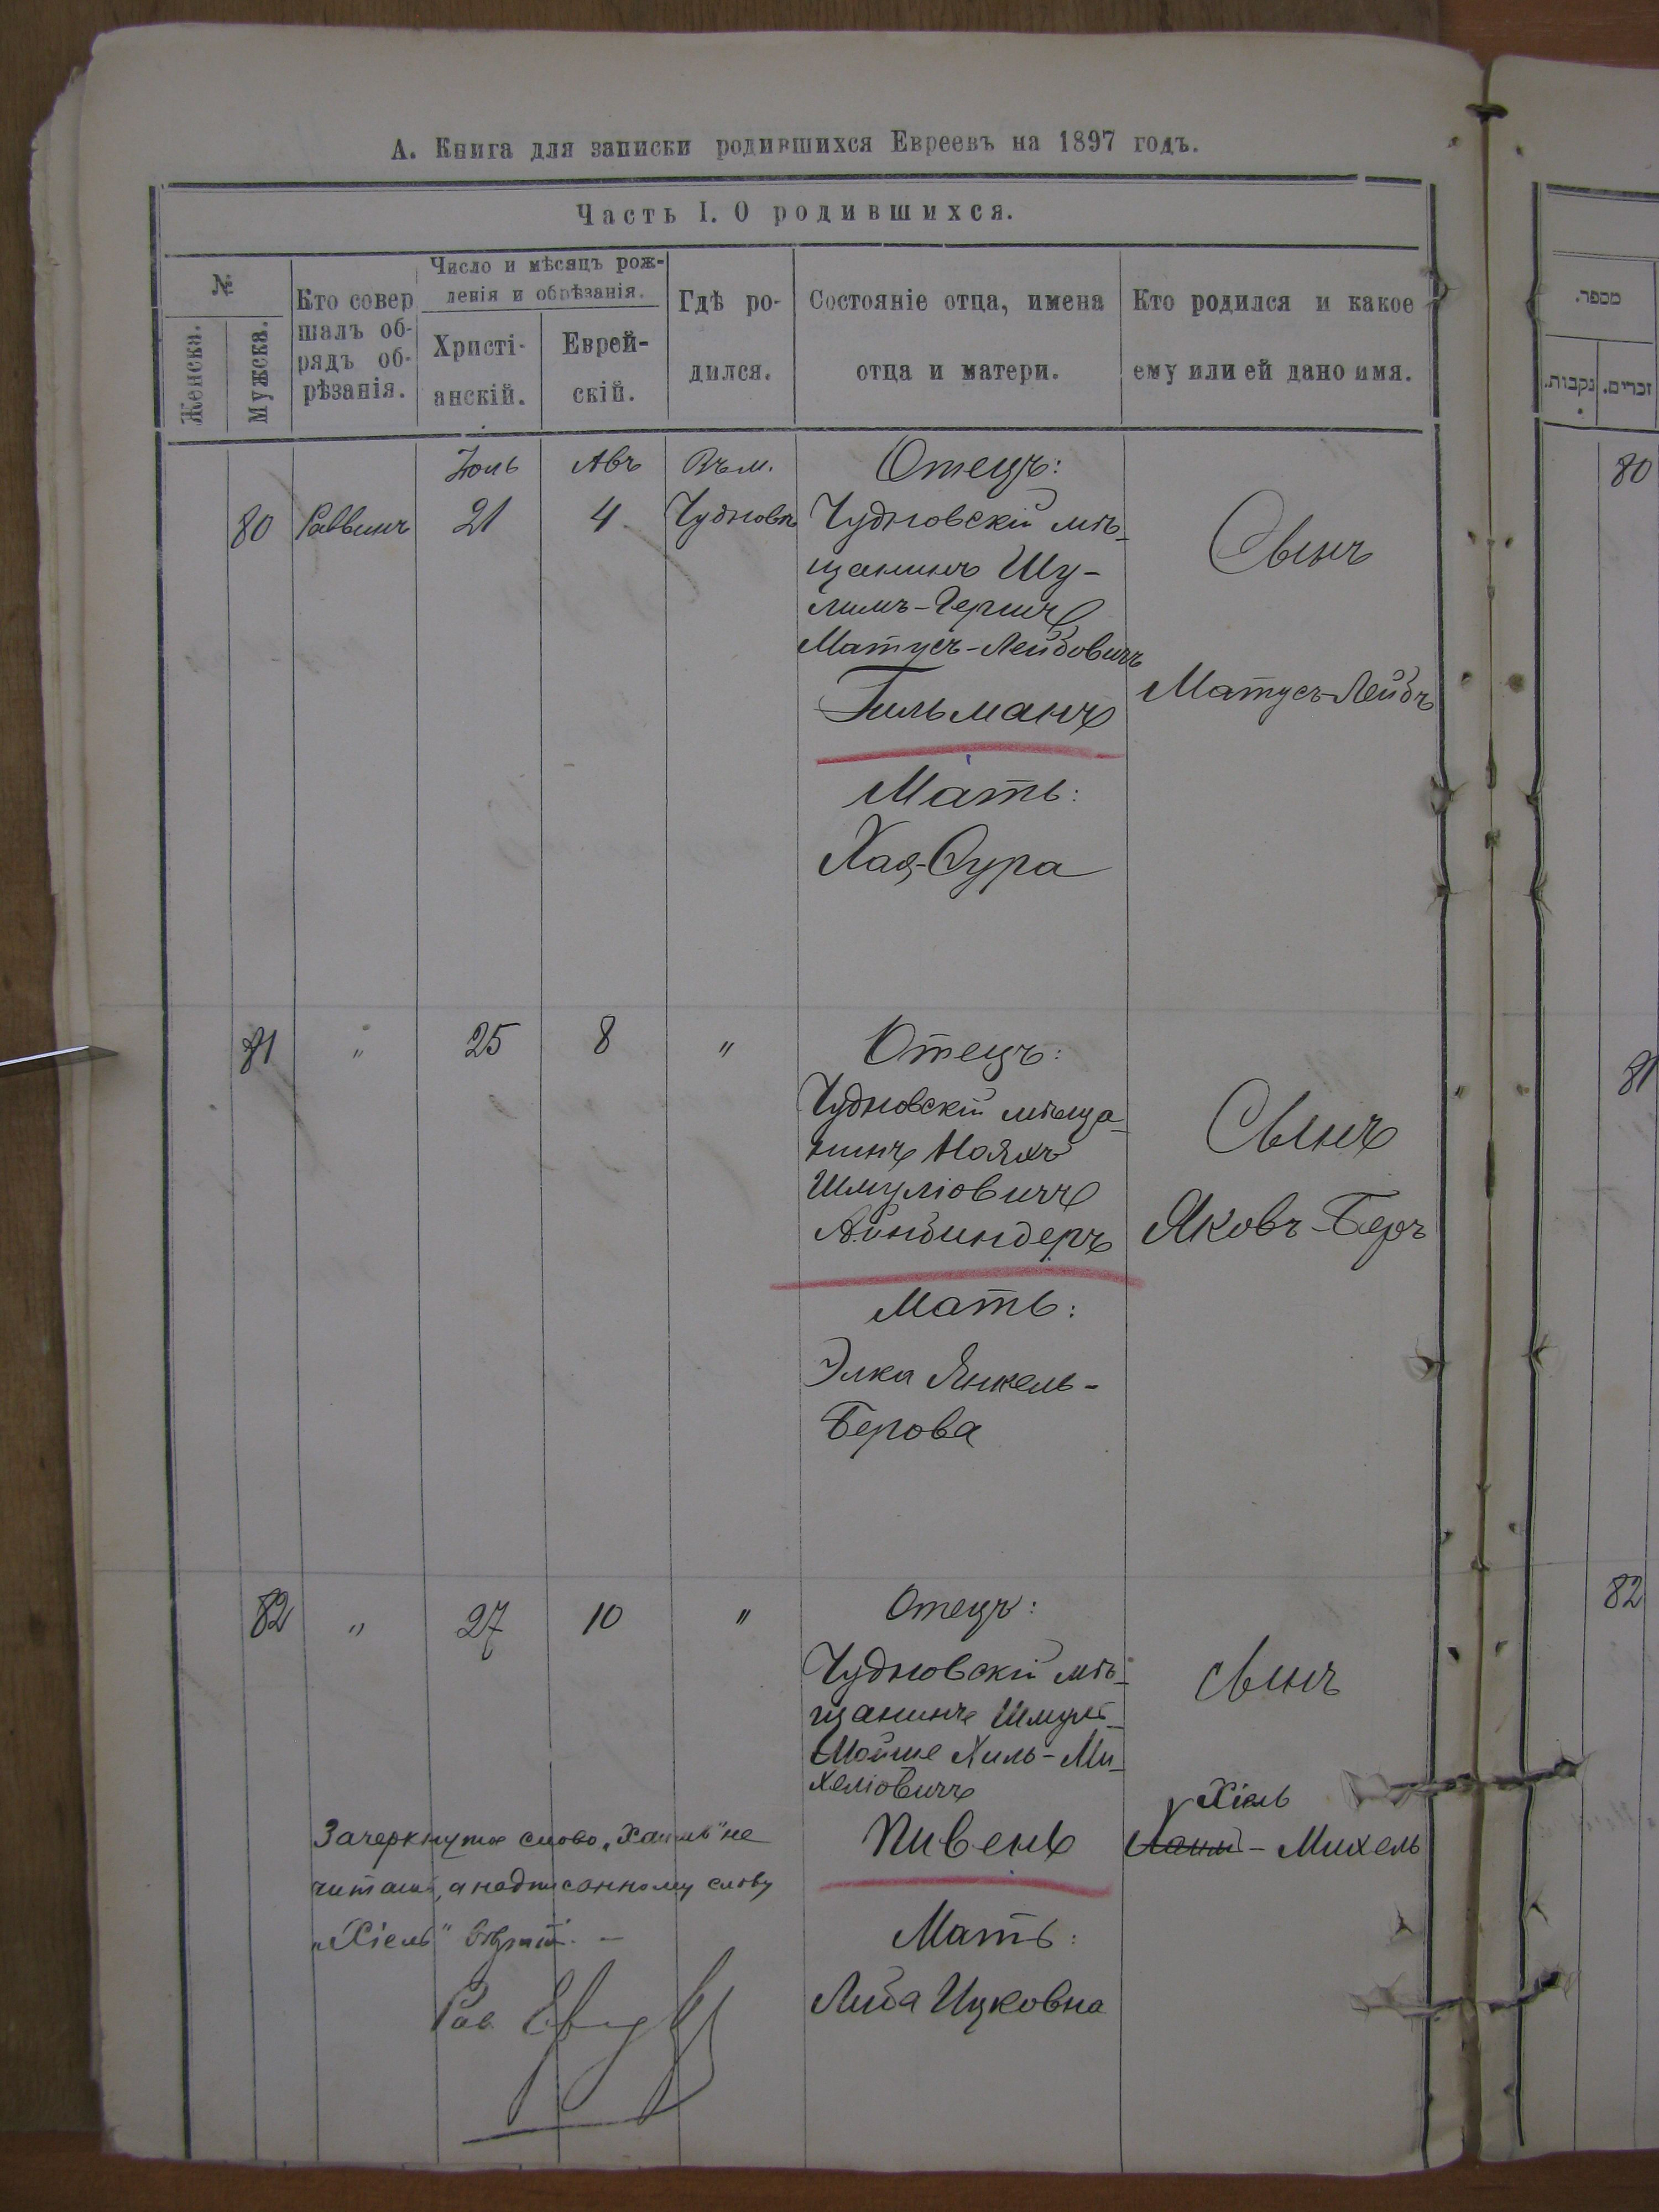 А. Книга для записки родившихся Евреевъ на 1897 годъ.
Часть I. О родившихся.
№
Женска.
Мужска.
Кто совер
шалъ об-
рядъ об-
рѣзанія.
Число и мѣсяцъ рож-
денія и обрѣзанія.
Христі-
анскій.
Еврей-
скій.
Гдѣ ро-
дился.
Состояніе отца, имена
отца и матери.
Кто родился и какое
ему или ей дано имя.
מספר.
נקבות.
זכרים.
Іюль
Авъ
Въ м.
Отецъ:
80
Раввинъ
21
4
Чудновѣ
Чудновскій мѣ-
щанинъ Шу-
лимъ-Гершъ
Матусъ-Лейбовичъ
Гильманъ
Мать:
Хая-Сура
Сынъ
Матусъ-Лейбъ
80
81
"
25
8
"
Отецъ:
Чудновскій мѣща-
нинъ Нояхъ
Шмуліовичъ
Айнбиндеръ
Мать:
Элка Янкель-
Берова
Сынъ
Яковъ-Беръ
81
82
"
27
10
"
Отецъ:
Чудновскій мѣ-
щанинъ Шмуль-
Мойше Хиль-Ми-
хеліовичъ
Пивень
Мать:
Либа Ицковна
сынъ
Хіель
- Михель
82
Зачеркнутое слово не
читать, а надписанному слову
"Хіель" вѣрить. -
Рав.